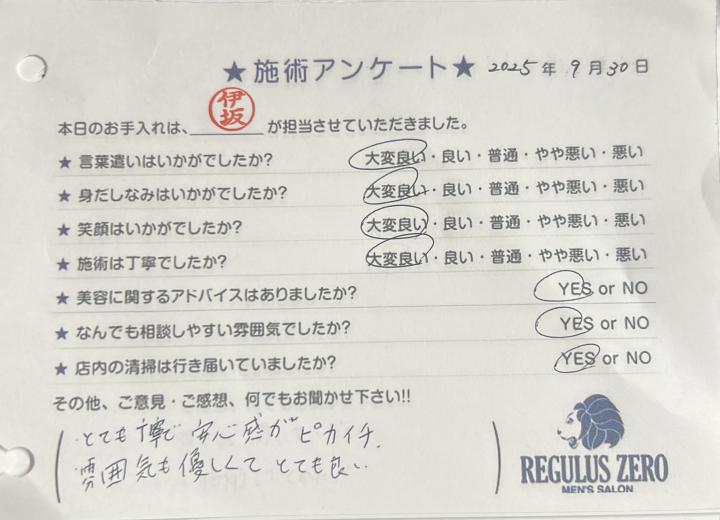 ★ 施術アンケート★ 2025年 9月30日
本日のお手入れは、伊坂が担当させていただきました。
★ 言葉遣いはいかがでしたか? 大変良い・良い・普通・やや悪い・悪い
★ 身だしなみはいかがでしたか? 大変良い・良い・普通・やや悪い・悪い
★ 笑顔はいかがでしたか? 大変良い・良い・普通・やや悪い・悪い
★ 施術は丁寧でしたか? 大変良い・良い・普通・やや悪い・悪い
★ 美容に関するアドバイスはありましたか? YES or NO
★ なんでも相談しやすい雰囲気でしたか? YES or NO
★ 店内の清掃は行き届いていましたか? YES or NO
その他、ご意見・ご感想、何でもお聞かせ下さい!!
とても丁寧で 安心感がピカイチ.
雰囲気も優しくて とても良い
REGULUS ZERO
MEN'S SALON